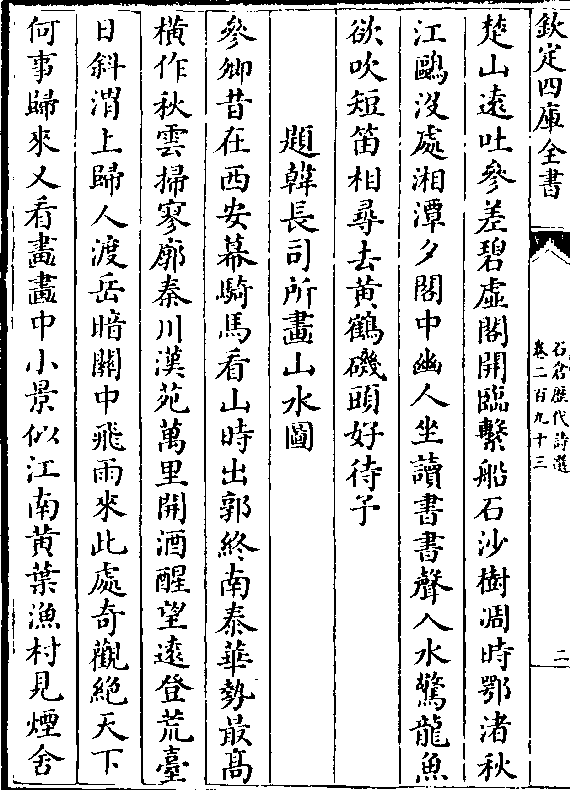 欽定四庫全書
石倉歷代詩選
卷二百九十三
二
楚山遠吐參差碧虛閣開臨繫船石沙樹凋時鄂渚秋
江鷗没處湘潭夕閣中幽人坐讀書書聲入水驚龍魚
欲吹短笛相尋去黄鶴磯頭好待予
題韓長司所畫山水圖
參卿昔在西安幕騎馬看山時出郭終南泰華勢最高
横作秋雲掃寥廓秦川漢苑萬里開酒醒望遠登荒臺
日斜渭上歸人渡岳暗關中飛雨來此處奇觀絶天下
何事歸來又看畫畫中小景似江南黄葉漁村見煙舍